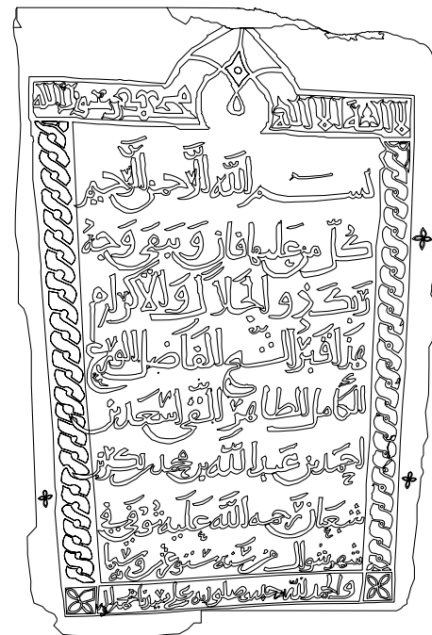 لا اله الا الله محمد رسول الله
بسم الله الرحمن الرحيم
كُلّ من عليها فان ويبقى وجه
ربك ذو الجلال والاكرام
هذا قبر الشيخ الفاضل الورع
الكامل الطاهر التقي اسعد بن
احمد بن عبد الله بن محمد بن بكر بن
شعبان رحمه الله عليه توفي في
شهر شوال سنة
والحمد لله وحده وصلواته على سيدنا محمد